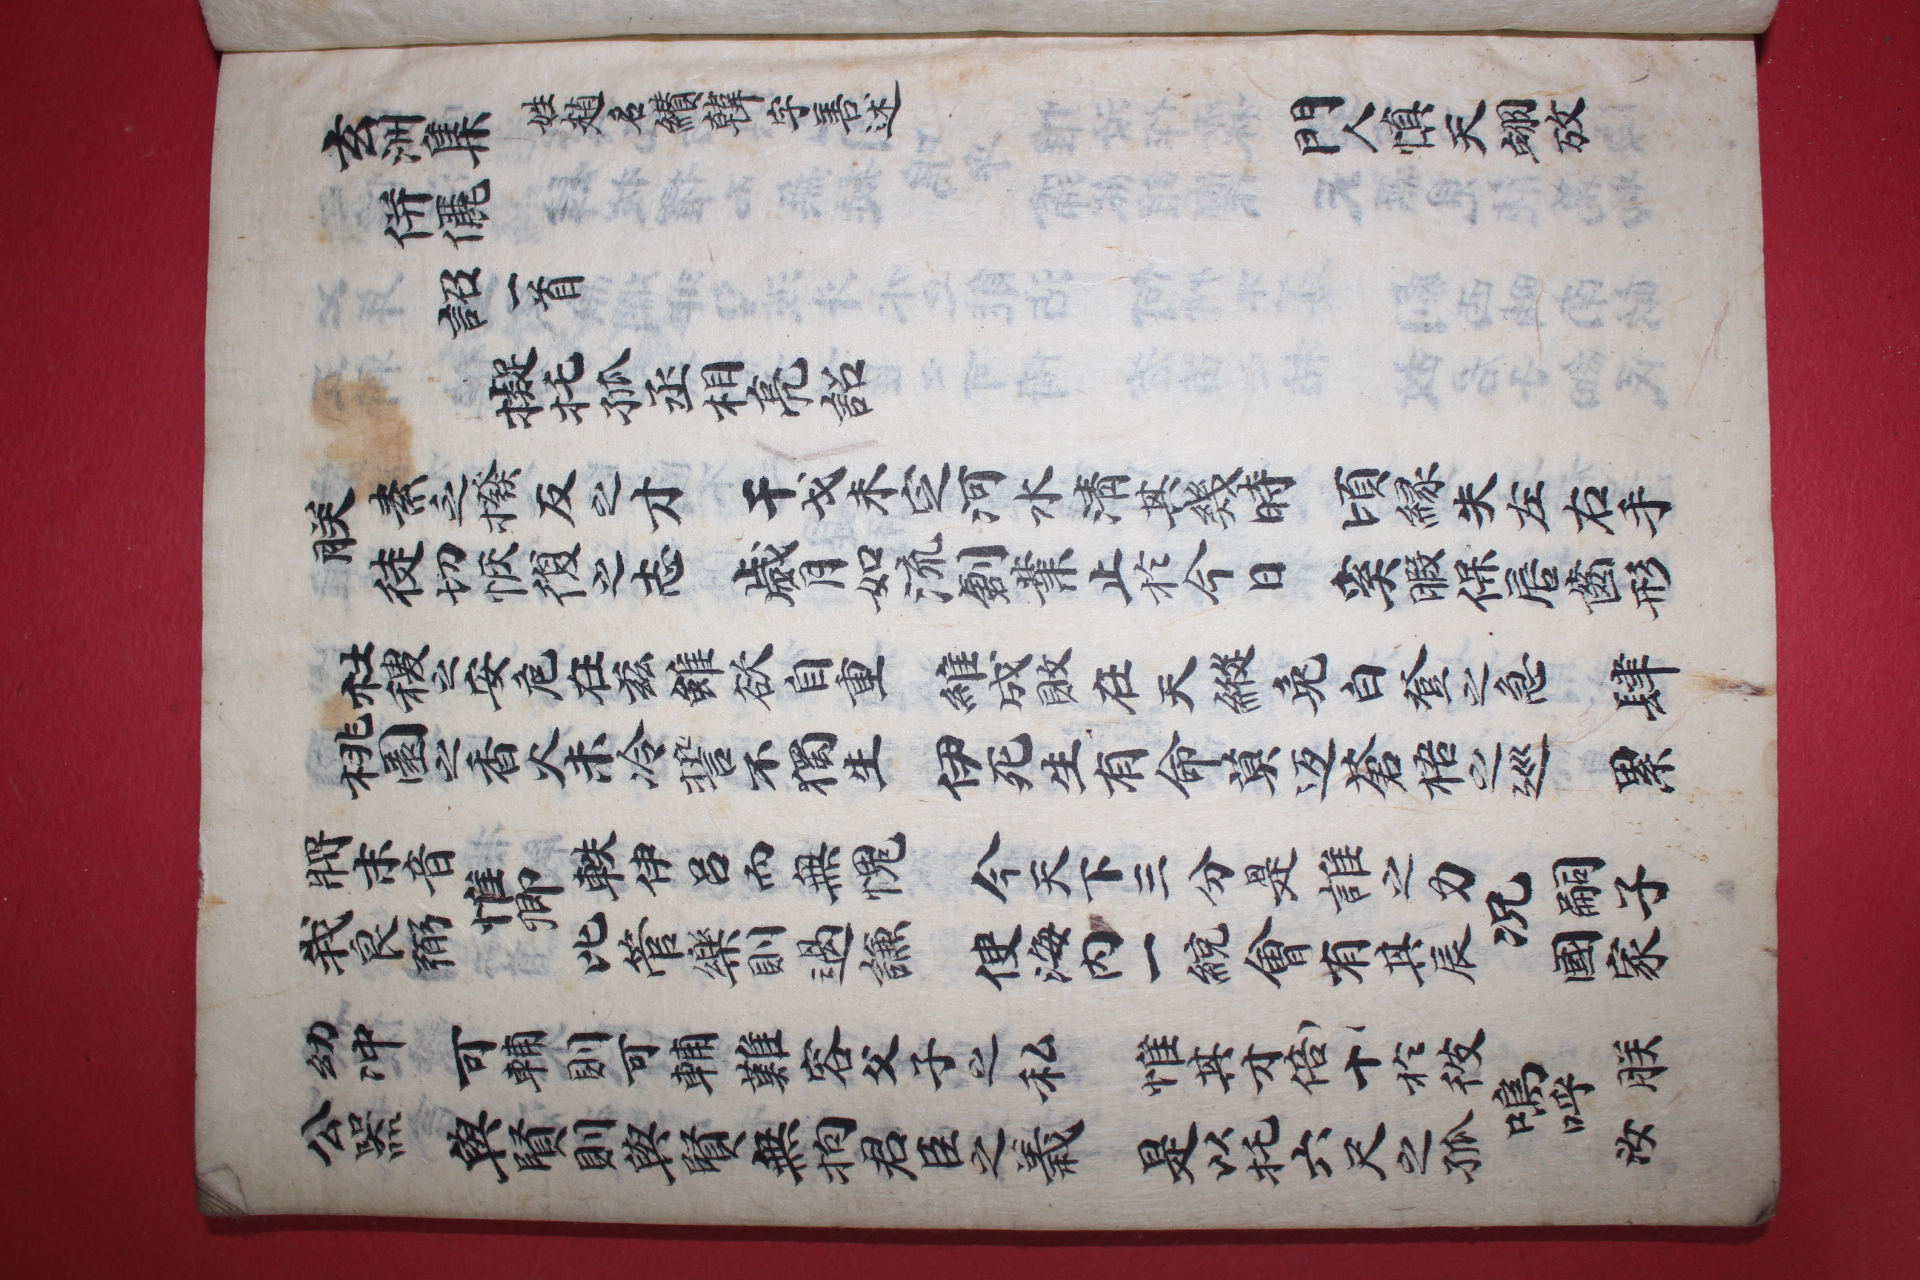 玄洲集 姓趙名纉韓字善述 門人慎天翊攷
併儷
詔一首
擬托孤丞相亮詔
朕
素乏撥反之才 干戈未定河水清其幾時 頃縁失左右手
徒切恢復之志 歲月如流創業止於今日 奚暇保唇齒形
社稷之安危在兹雖欲自重 維成敗在天縱免白登之急 肆
桃園之香火未冷誓不獨生 伊死生有命莫返蒼梧之巡 累
將末音
我良弼
惟卿
軼伊吕而無愧 今天下三分是誰之力
比管樂則過謙 使海内一統會有其辰
况
嗣子
國家
幼冲 可輔則可輔難容父子之私 惟其才倍十於彼
公器 與賢則與賢無拘君臣之義 是以托六尺之孤
嗚呼
朕
汝